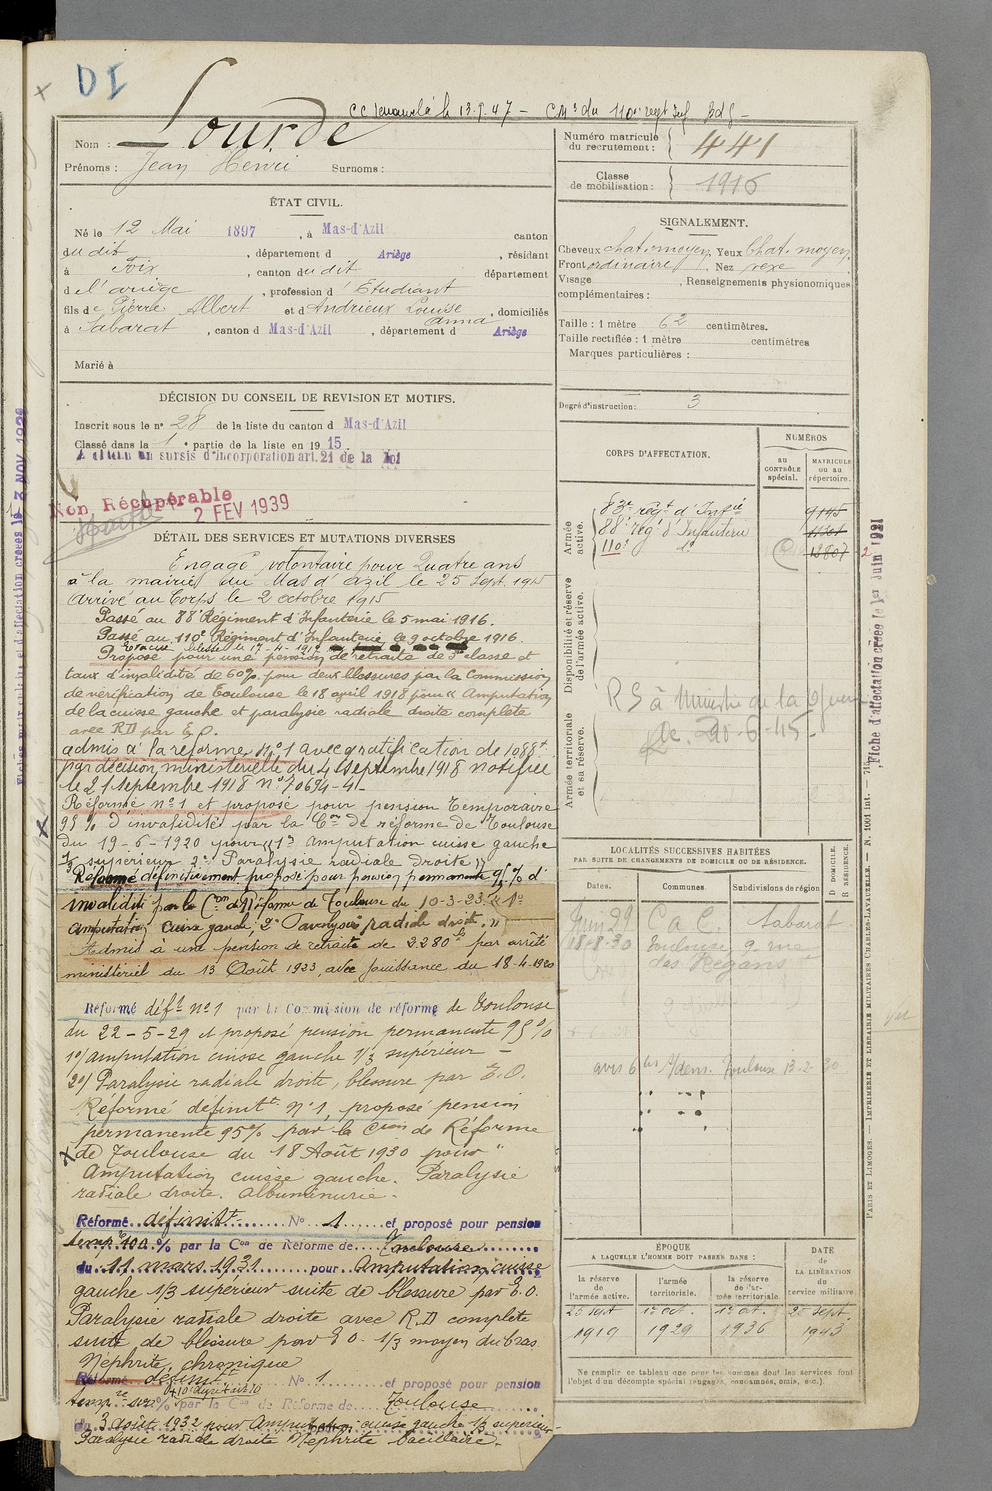 DI
CC renouvelé le 13.9.47 — CMᵗ du 110ᵉ regt Inf
Nom : Lourde
Prénoms : Jean Henri Surnoms :
ÉTAT CIVIL.
Né le 12 Mai 1897, à Mas-d'Azil canton
du dit, département d Ariège, résidant
à Foix, canton du dit département
de l'ariège, profession d'Etudiant
fils de Pierre Albert et d'Andrieux Louise Anna, domiciliés
à Sabarat, canton d Mas-d'Azil, département d Ariège
Marié à
DÉCISION DU CONSEIL DE REVISION ET MOTIFS.
Inscrit sous le nº 28 de la liste du canton d Mas-d'Azil
Classé dans la 1ᵉ partie de la liste en 1915
A obtenu un sursis d'incorporation art. 21 de la loi
Non Récupérable
2 FEV 1939
DÉTAIL DES SERVICES ET MUTATIONS DIVERSES
Engagé volontaire pour Quatre ans
à la mairie du Mas d'Azil le 25 Sept. 1915
Arrivé au Corps le 2 octobre 1915
Passé au 88ᵉ Régiment d'Infanterie le 5 mai 1916.
Passé au 110ᵉ Régiment d'Infanterie le 9 octobre 1916.
Evacué blessé le 17-4-191
Proposé pour une pension de retraite de 3ᵉ classe et
taux d'invalidité de 60% pour deux blessures par la Commission
de vérification de Toulouse le 18 avril 1918 pour « Amputation
de la cuisse gauche et paralysie radiale droite complète
avec RD par E.O.
admis à la réforme Nº1 avec gratification de 1088ᶠ
par décision ministérielle du 4 septembre 1918 notifiée
le 21 septembre 1918 nº 70694-41-
Réformé nº1 et proposé pour pension Temporaire
95% d'invalidité par la Cᵒⁿ de réforme de Toulouse
du 19-6-1920 pour « 1º Amputation cuisse gauche
1/3 supérieur 2º Paralysie radiale droite »
Réformé définitivement proposé pour pension permanente 95% d'
invalidité par la Cᵒⁿ de réforme de Toulouse du 10-3-23. « 1º
amputation cuisse gauche, 2º paralysie radiale droite. »
Admis à une pension de retraite de 2.280ᶠ par arrêté
ministériel du 13 Août 1923, avec jouissance du 18-4-1920
Réformé défᵗ nº1 par la Commission de réforme de Toulouse
du 22-5-29 et proposé pension permanente 95%
1º/ amputation cuisse gauche 1/3 supérieur —
2º/ Paralysie radiale droite, blessure par E.O.
Réformé définitᵗ nº1, proposé pension
permanente 95% par la Cᵒⁿ de Réforme
X de Toulouse du 18 Août 1930 pour "
Amputation cuisse gauche. Paralysie
radiale droite. Albuminurie.
Réformé définitᵗ Nº 1 et proposé pour pension
tempʳᵉ 100% par la Cᵒⁿ de Réforme de Toulouse
du 11 mars 1931 pour Amputation cuisse
gauche 1/3 supérieur suite de blessure par E.O.
Paralysie radiale droite avec R.D complète
suite de blessure par EO. 1/3 moyen du bras
Néphrite chronique
Réformé définitᵗ Nº 1 et proposé pour pension
% par la Cᵒⁿ de Réforme de Toulouse
du 3 août 1932 pour Amputation cuisse gauche 1/3 supérieur
Paralysie radiale droite Néphrite bacillaire.
Numéro matricule du recrutement : 441
Classe de mobilisation : 1916
SIGNALEMENT.
Cheveux chat. moyen, Yeux chat. moyen,
Front ordinaire, Nez vexe
Visage , Renseignements physionomiques
complémentaires :
Taille : 1 mètre 62 centimètres.
Taille rectifiée : 1 mètre centimètres
Marques particulières :
Degré d'instruction : 3
CORPS D'AFFECTATION.
NUMÉROS
au CONTRÔLE spécial.
MATRICULE ou au répertoire.
Armée active.
83ᵉ régᵗ d'Infⁱᵉ 9145
88ᵉ rég d'Infanterie 11301
110ᵉ dº 12807
Disponibilité et réserve de l'armée active.
RS à Ministre de la Guerre
le 20-6-45
Armée territoriale et sa réserve.
LOCALITÉS SUCCESSIVES HABITÉES
PAR SUITE DE CHANGEMENTS DE DOMICILE OU DE RÉSIDENCE.
Dates. Communes. Subdivisions de région
D DOMICILE.
R RÉSIDENCE.
Juin 29 C a C. Sabarat
18-8-30 Toulouse 9 rue
des Régans
avis 6 Toulouse 13-2-30
ÉPOQUE
A LAQUELLE L'HOMME DOIT PASSER DANS :
DATE de LA LIBÉRATION du service militaire.
la réserve de l'armée active. l'armée territoriale. la réserve de l'armée territoriale.
25 Sept 1919 1ᵉʳ oct. 1929 1ᵉʳ oct. 1936 25 Sept. 1943
Ne remplir ce tableau que pour les hommes dont les services font
l'objet d'un décompte spécial (engagés, condamnés, omis, etc.).
Fiche d'affectation créée le 1er Juin 1921
PARIS ET LIMOGES. — IMPRIMERIE ET LIBRAIRIE MILITAIRES CHARLES-LAVAUZELLE. — N. 1001 int. —